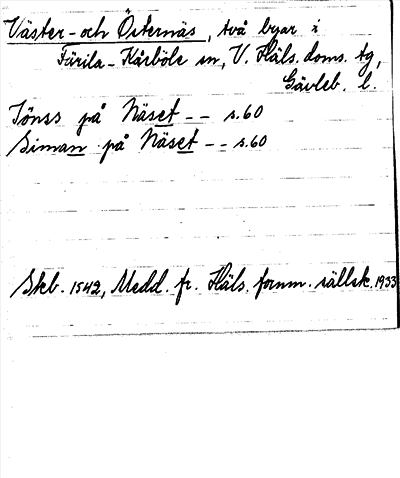 Väster- och Östernäs, två byar i
Färila-Kårböle sn, V. Häls. doms. tg,
Gävleb. l.
Jönss på Näset -- s.60
Siman på Näset -- s.60
Skb. 1542, Medd. fr. Häls. fornm. sällsk. 1933